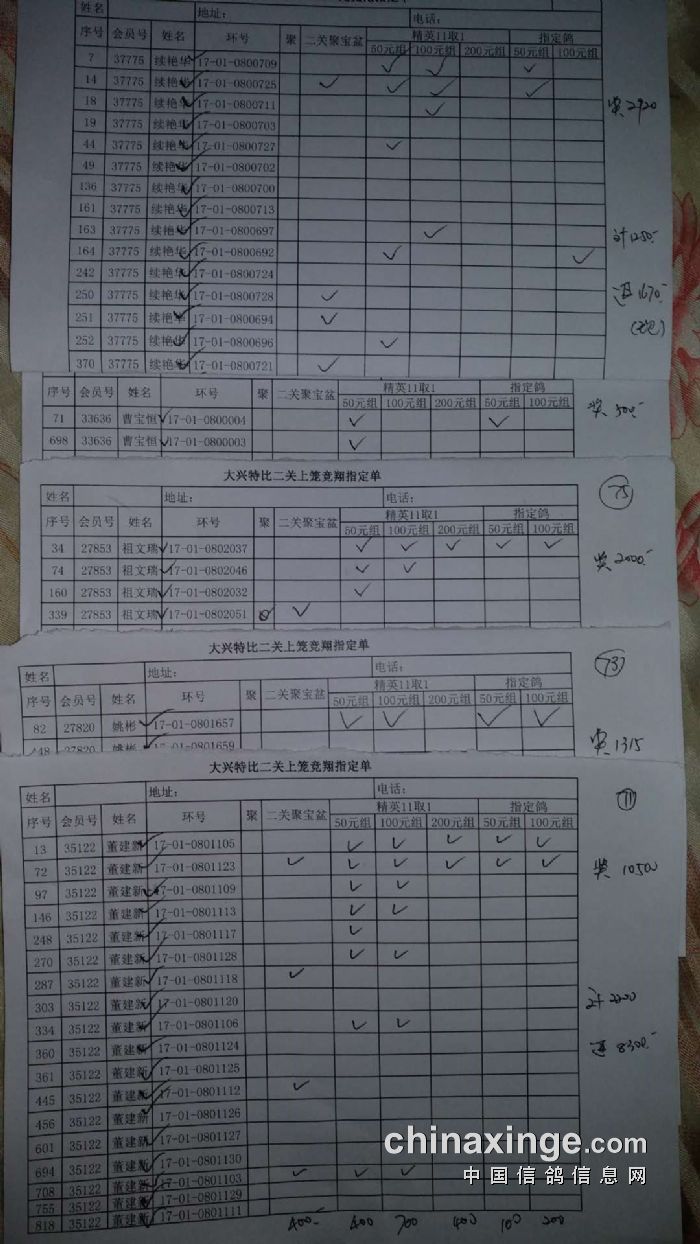 姓名 地址： 电话：
序号 会员号 姓名 环号 聚 二关聚宝盆 精英11取1 指定鸽
50元组 100元组 200元组 50元组 100元组
7 37775 续艳华 17-01-0800709 ✓ ✓ ✓
14 37775 续艳华 17-01-0800725 ✓ ✓ ✓ ✓
18 37775 续艳华 17-01-0800711 ✓ 奖2920
19 37775 续艳华 17-01-0800703
44 37775 续艳华 17-01-0800727 ✓
49 37775 续艳华 17-01-0800702
136 37775 续艳华 17-01-0800700
161 37775 续艳华 17-01-0800713
163 37775 续艳华 17-01-0800697 ✓ 计1250-
164 37775 续艳华 17-01-0800692 ✓ ✓
242 37775 续艳华 17-01-0800724
250 37775 续艳华 17-01-0800728 ✓ 1670-
251 37775 续艳华 17-01-0800694 ✓
252 37775 续艳华 17-01-0800696 ✓
370 37775 续艳华 17-01-0800721 ✓
序号 会员号 姓名 环号 聚 二关聚宝盆 精英11取1 指定鸽
50元组 100元组 200元组 50元组 100元组
71 33636 曹宝恒 17-01-0800004 ✓ ✓ 奖500-
698 33636 曹宝恒 17-01-0800003 ✓
大兴特比二关上笼竞翔指定单
姓名 地址： 电话： 75
序号 会员号 姓名 环号 聚 二关聚宝盆 精英11取1 指定鸽
50元组 100元组 200元组 50元组 100元组
34 27853 祖文瑞 17-01-0802037 ✓ ✓ ✓ ✓ ✓
74 27853 祖文瑞 17-01-0802046 ✓ ✓ 奖2000-
160 27853 祖文瑞 17-01-0802032 ✓
339 27853 祖文瑞 17-01-0802051 ✓
大兴特比二关上笼竞翔指定单
姓名 地址： 电话： 73
序号 会员号 姓名 环号 聚 二关聚宝盆 精英11取1 指定鸽
50元组 100元组 200元组 50元组 100元组
82 27820 姚彬 17-01-0801657 ✓ ✓ ✓ ✓
148 27820 姚彬 17-01-0801659 奖1315
大兴特比二关上笼竞翔指定单
姓名 地址： 电话：
序号 会员号 姓名 环号 聚 二关聚宝盆 精英11取1 指定鸽
50元组 100元组 200元组 50元组 100元组
13 35122 董建新 17-01-0801105 ✓ ✓ ✓ ✓ ✓
72 35122 董建新 17-01-0801123 ✓ ✓ ✓ ✓ ✓ ✓ 奖10500
97 35122 董建新 17-01-0801109 ✓ ✓
146 35122 董建新 17-01-0801113 ✓ ✓
248 35122 董建新 17-01-0801117 ✓
270 35122 董建新 17-01-0801128 ✓ ✓
287 35122 董建新 17-01-0801118 ✓
303 35122 董建新 17-01-0801120 计2200
334 35122 董建新 17-01-0801106 ✓ ✓
360 35122 董建新 17-01-0801124 8300-
361 35122 董建新 17-01-0801125
445 35122 董建新 17-01-0801112 ✓
456 35122 董建新 17-01-0801126
601 35122 董建新 17-01-0801127
694 35122 董建新 17-01-0801130 ✓ ✓ ✓
708 35122 董建新 17-01-0801103
755 35122 董建新 17-01-0801129
818 35122 董建新 17-01-0801111
400- 400 700 400 100 200
chinaxinge.com
中国信鸽信息网